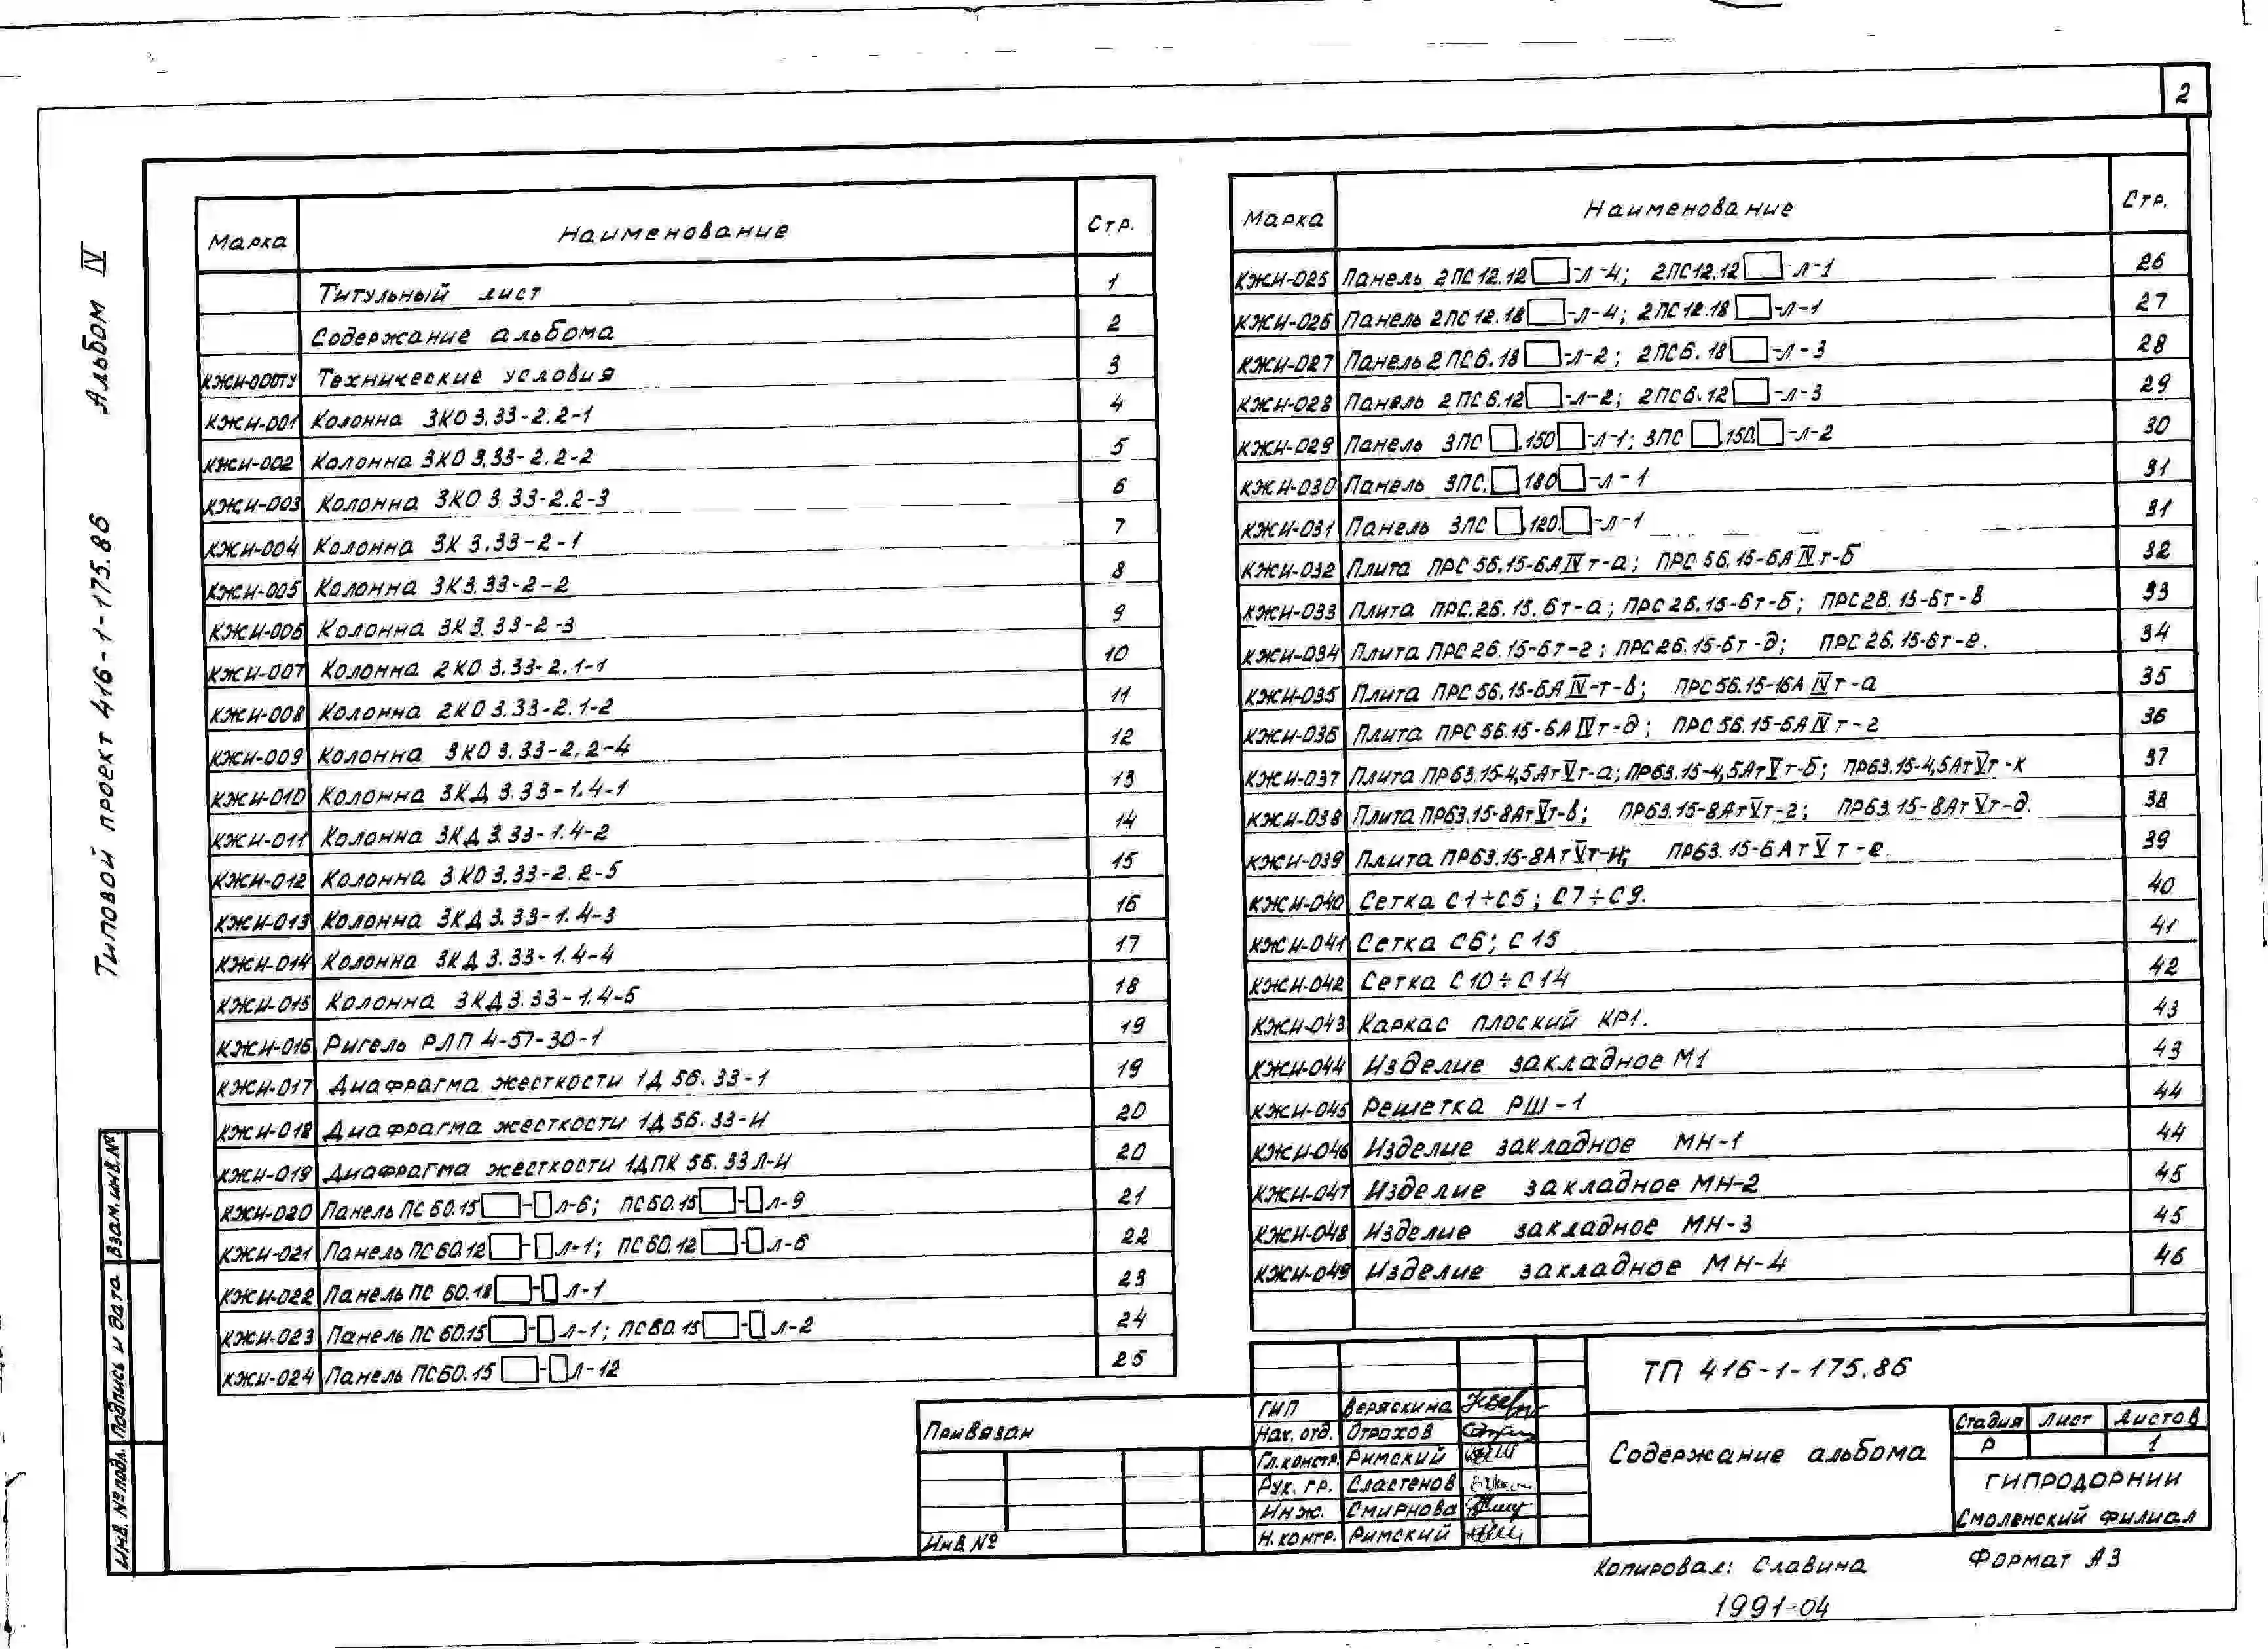 2
Альбом IV
Типовой проект 416-1-175.86
Марка Наименование Стр.
Титульный лист 1
Содержание альбома 2
КЖИ-000ТУ Технические условия 3
КЖИ-001 Колонна 3КО 3.33-2.2-1 4
КЖИ-002 Колонна 3КО 3.33-2.2-2 5
КЖИ-003 Колонна 3КО 3.33-2.2-3 6
КЖИ-004 Колонна 3К 3.33-2-1 7
КЖИ-005 Колонна 3К3.33-2-2 8
КЖИ-006 Колонна 3К3.33-2-3 9
КЖИ-007 Колонна 2КО 3.33-2.1-1 10
КЖИ-008 Колонна 2КО 3.33-2.1-2 11
КЖИ-009 Колонна 3КО 3.33-2.2-4 12
КЖИ-010 Колонна 3КД 3.33-1.4-1 13
КЖИ-011 Колонна 3КД 3.33-1.4-2 14
КЖИ-012 Колонна 3КО 3.33-2.2-5 15
КЖИ-013 Колонна 3КД 3.33-1.4-3 16
КЖИ-014 Колонна 3КД 3.33-1.4-4 17
КЖИ-015 Колонна 3КД 3.33-1.4-5 18
КЖИ-016 Ригель РЛП 4-57-30-1 19
КЖИ-017 Диафрагма жесткости 1Д 56.33-1 19
КЖИ-018 Диафрагма жесткости 1Д 56.33-И 20
КЖИ-019 Диафрагма жесткости 1ДПК 56.33Л-И 20
КЖИ-020 Панель ПС 60.15□-□л-6; ПС60.15□-□л-9 21
КЖИ-021 Панель ПС 60.12□-□л-1; ПС60.12□-□л-6 22
КЖИ-022 Панель ПС 60.18□-□л-1 23
КЖИ-023 Панель ПС 60.15□-□л-1; ПС60.15□-□л-2 24
КЖИ-024 Панель ПС60.15□-□л-12 25
Марка Наименование Стр.
КЖИ-025 Панель 2ПС12.12□-л-4; 2ПС12.12□-л-1 26
КЖИ-026 Панель 2ПС12.18□-л-4; 2ПС12.18□-л-1 27
КЖИ-027 Панель 2ПС6.18□-л-2; 2ПС6.18□-л-3 28
КЖИ-028 Панель 2ПС6.12□-л-2; 2ПС6.12□-л-3 29
КЖИ-029 Панель 3ПС□.150□-л-1; 3ПС□.150.□-л-2 30
КЖИ-030 Панель 3ПС.□180□-л-1 31
КЖИ-031 Панель 3ПС□.120.□-л-1 31
КЖИ-032 Плита ПРС 56.15-6АIVт-а; ПРС 56.15-6АIVт-б 32
КЖИ-033 Плита ПРС.26.15.6т-а; ПРС26.15-6т-б; ПРС26.15-6т-в 33
КЖИ-034 Плита ПРС26.15-6т-г; ПРС26.15-6т-д; ПРС26.15-6т-е. 34
КЖИ-035 Плита ПРС 56.15-6АIV-т-в; ПРС56.15-16АIVт-а 35
КЖИ-036 Плита ПРС 56.15-6АIVт-д; ПРС 56.15-6АIVт-г 36
КЖИ-037 Плита ПР63.15-4,5АтVт-а; ПР63.15-4,5АтVт-б; ПР63.15-4,5АтVт-к 37
КЖИ-038 Плита ПР63.15-8АтVт-в; ПР63.15-8АтVт-г; ПР63.15-8АтVт-д. 38
КЖИ-039 Плита ПР63.15-8АтVт-и; ПР63.15-6АтVт-е. 39
КЖИ-040 Сетка С1÷С5; С7÷С9. 40
КЖИ-041 Сетка С6; С15 41
КЖИ-042 Сетка С10÷С14 42
КЖИ-043 Каркас плоский КР1. 43
КЖИ-044 Изделие закладное М1 43
КЖИ-045 Решетка РШ-1 44
КЖИ-046 Изделие закладное МН-1 44
КЖИ-047 Изделие закладное МН-2 45
КЖИ-048 Изделие закладное МН-3 45
КЖИ-049 Изделие закладное МН-4 46
Взам.инв.№
Подпись и дата
Инв.№подл.
Привязан
Инв.№
ГИП Веряскина
Нач. отд. Отрохов
Гл.констр. Римский
Рук. гр. Сластенов
Инж. Смирнова
Н.контр. Римский
ТП 416-1-175.86
Содержание альбома
Стадия Лист Листов
Р 1
ГИПРОДОРНИИ
Смоленский филиал
Копировал: Славина Формат А3
1991-04